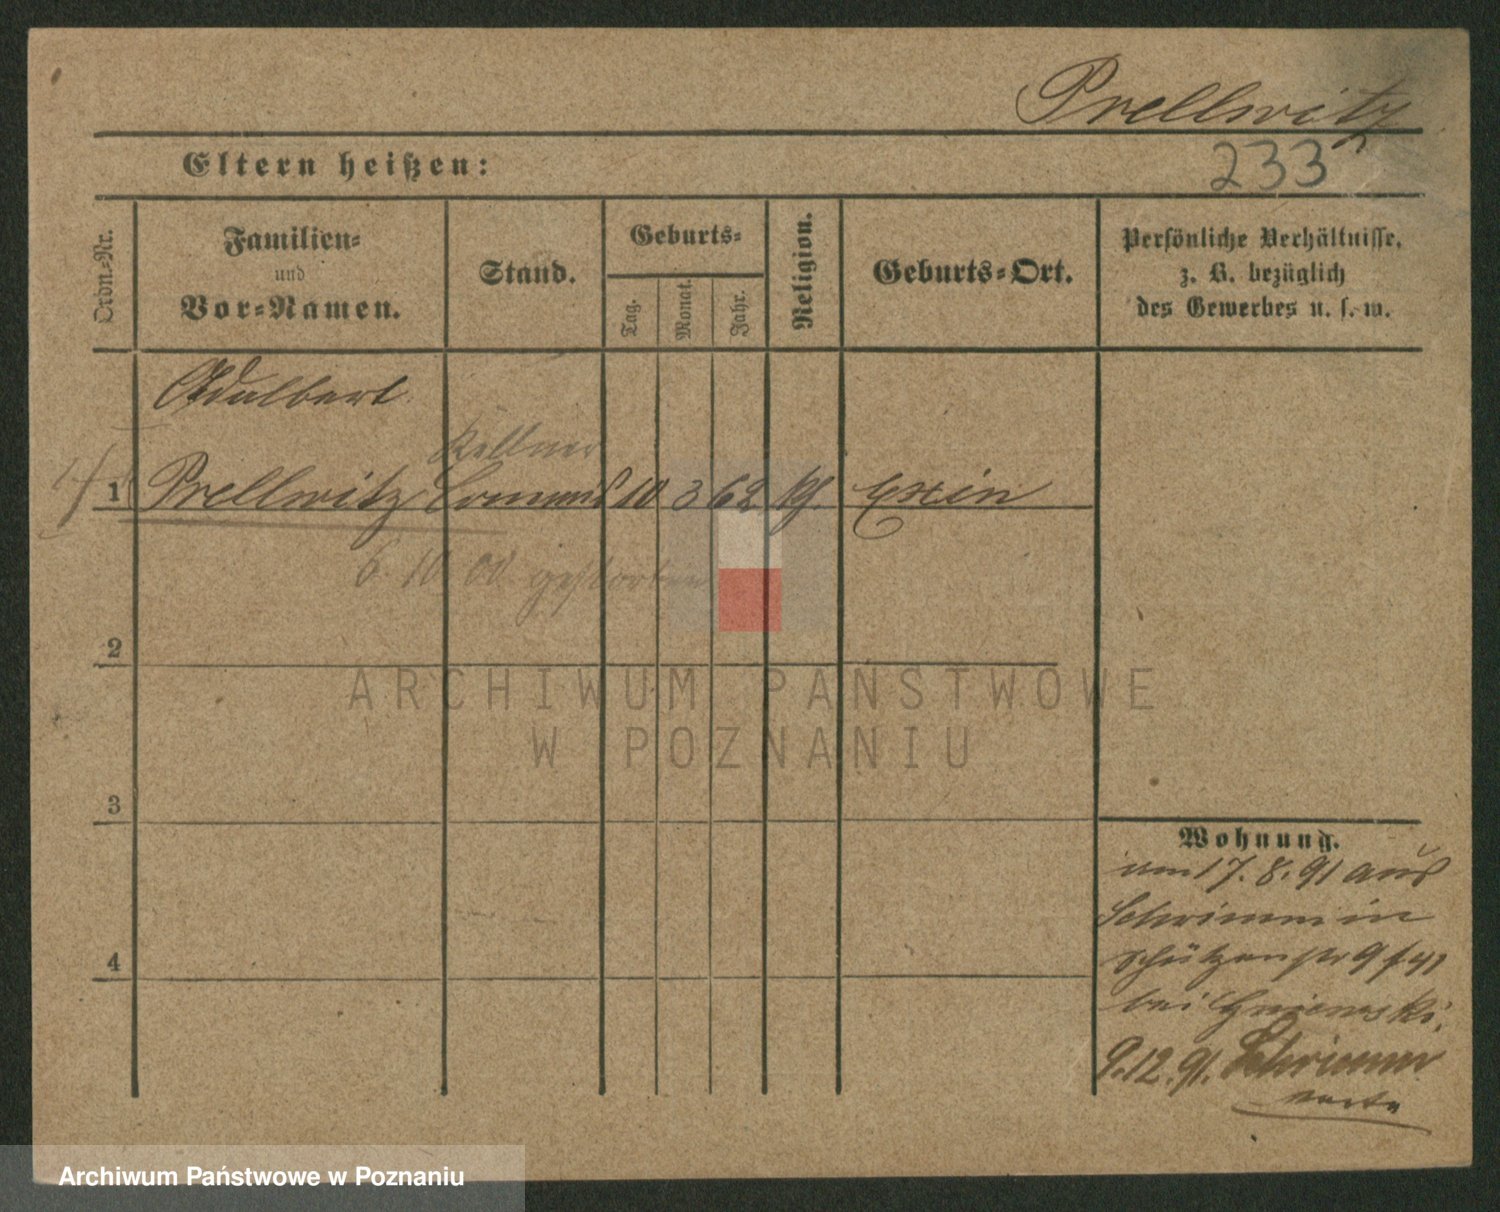 Prellwitz
233
Eltern heißen:
Ordn.-Nr.
Familien-
und
Vor-Namen.
Stand.
Geburts-
Tag.
Monat.
Jahr.
Religion.
Geburts-Ort.
Persönliche Verhältnisse,
z. B. bezüglich
des Gewerbes u. s. w.
Adalbert
Kellner
1 Prellwitz Commis 10 3 62 kh. Exin
6 10. 00 gestorben
2
ARCHIWUM PAŃSTWOWE
W POZNANIU
3
4
Wohnung.
am 17. 8. 91 aus
Schrimm in
Schützenstr 9
bei Gniewski.
9.12.91. Schrimm
Archiwum Państwowe w Poznaniu